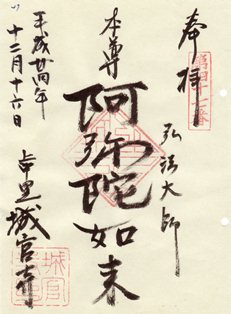 奉拝
第四十七番
弘法大師
本尊
阿弥陀如来
平成廿四年
十二月十六日
城官寺
城官